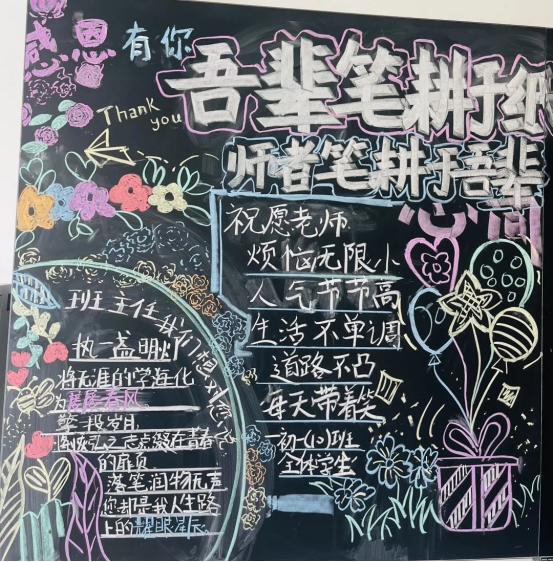 感恩
有你
Thank
you
吾辈笔耕于纸
师者笔耕于吾辈
心间
祝愿老师
烦恼无限小
人气节节高
生活不单调
道路不凸
每天带着笑
初一(10)班
全体学生
班主任我们想对您说
执一盏明灯
将无涯的学海化
为展展春风
擎一段岁月
在青春
的扉页
落笔润物无声
您都是我人生路
上的耀眼星辰